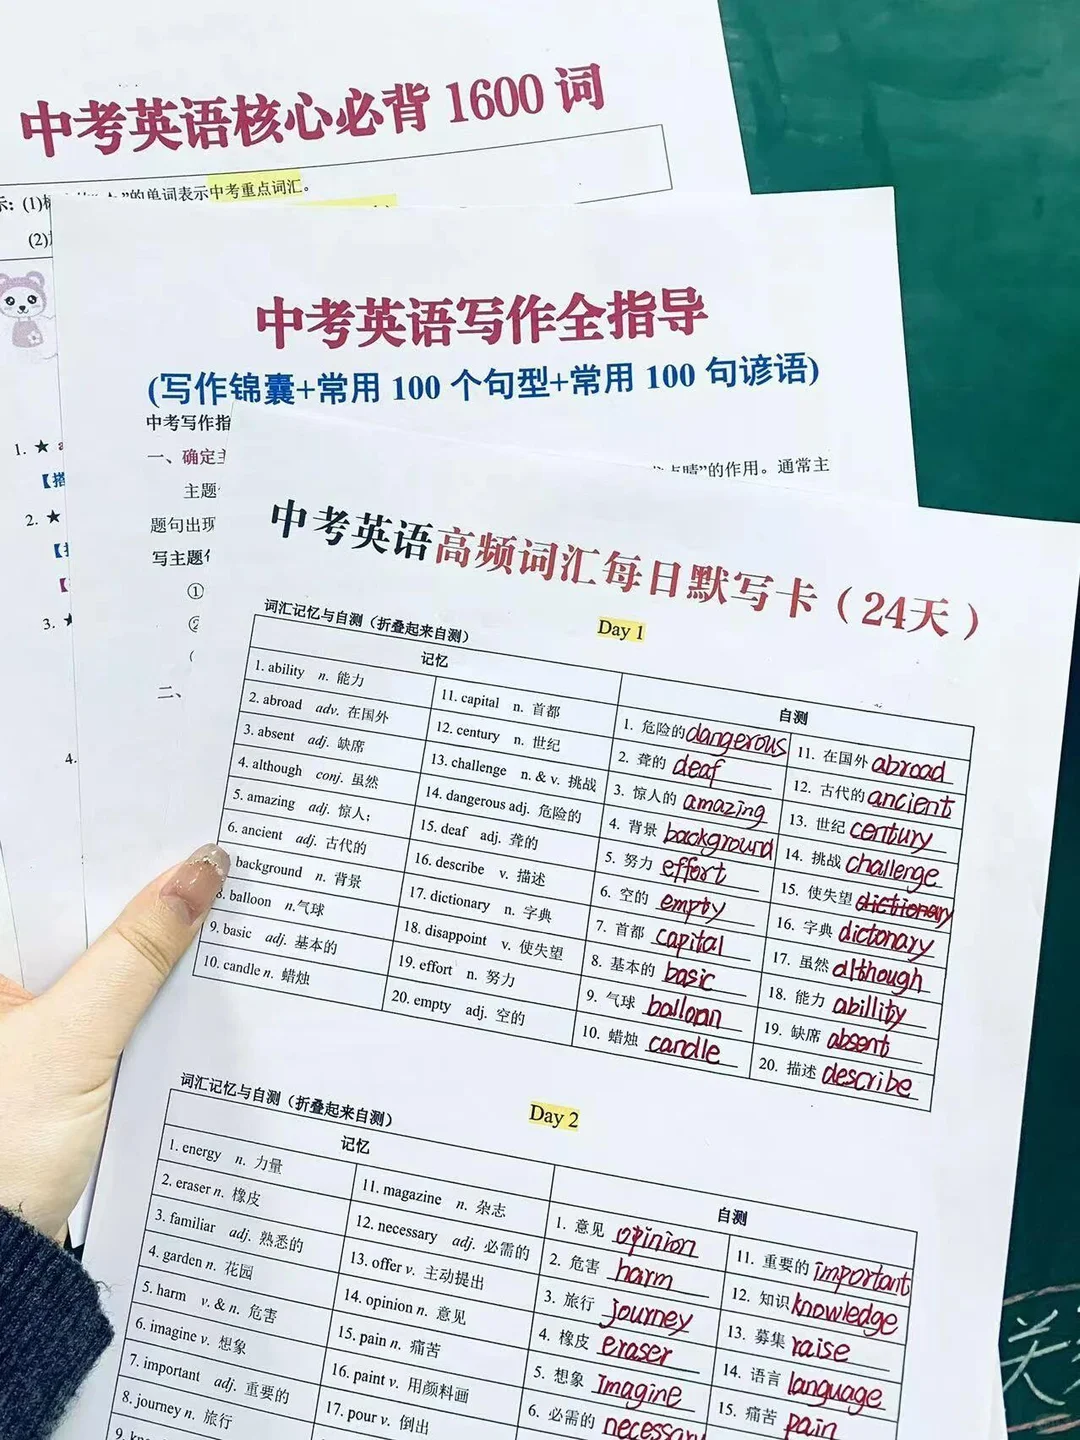 中考英语核心必背 1600 词
”的单词表示中考重点词汇。
中考英语写作全指导
(写作锦囊+常用 100 个句型+常用 100 句谚语)
中考写作指
一、确定主
”的作用。通常主
主题
题句出现
写主题
①
②
二、
1. ★
2. ★
3. ★
4.
中考英语高频词汇每日默写卡（24天）
词汇记忆与自测（折叠起来自测）
Day 1
记忆
自测
1. ability n. 能力
2. abroad adv. 在国外
3. absent adj. 缺席
4. although conj. 虽然
5. amazing adj. 惊人;
6. ancient adj. 古代的
background n. 背景
8. balloon n.气球
9. basic adj. 基本的
10. candle n. 蜡烛
11. capital n. 首都
12. century n. 世纪
13. challenge n. & v. 挑战
14. dangerous adj. 危险的
15. deaf adj. 聋的
16. describe v. 描述
17. dictionary n. 字典
18. disappoint v. 使失望
19. effort n. 努力
20. empty adj. 空的
1. 危险的 dangerous
2. 聋的 deaf
3. 惊人的 amazing
4. 背景 background
5. 努力 effort
6. 空的 empty
7. 首都 capital
8. 基本的 basic
9. 气球 balloon
10. 蜡烛 candle
11. 在国外 abroad
12. 古代的 ancient
13. 世纪 century
14. 挑战 challenge
15. 使失望 dictionary
16. 字典 dictonary
17. 虽然 although
18. 能力 abillity
19. 缺席 absent
20. 描述 describe
词汇记忆与自测（折叠起来自测）
Day 2
记忆
自测
1. energy n. 力量
2. eraser n. 橡皮
3. familiar adj. 熟悉的
4. garden n. 花园
5. harm v. & n. 危害
6. imagine v. 想象
7. important adj. 重要的
8. journey n. 旅行
11. magazine n. 杂志
12. necessary adj. 必需的
13. offer v. 主动提出
14. opinion n. 意见
15. pain n. 痛苦
16. paint v. 用颜料画
17. pour v. 倒出
1. 意见 opinion
2. 危害 harm
3. 旅行 journey
4. 橡皮 eraser
5. 想象 Imagine
6. 必需的 necessary
11. 重要的 important
12. 知识 knowledge
13. 募集 raise
14. 语言 language
15. 痛苦 pain
关